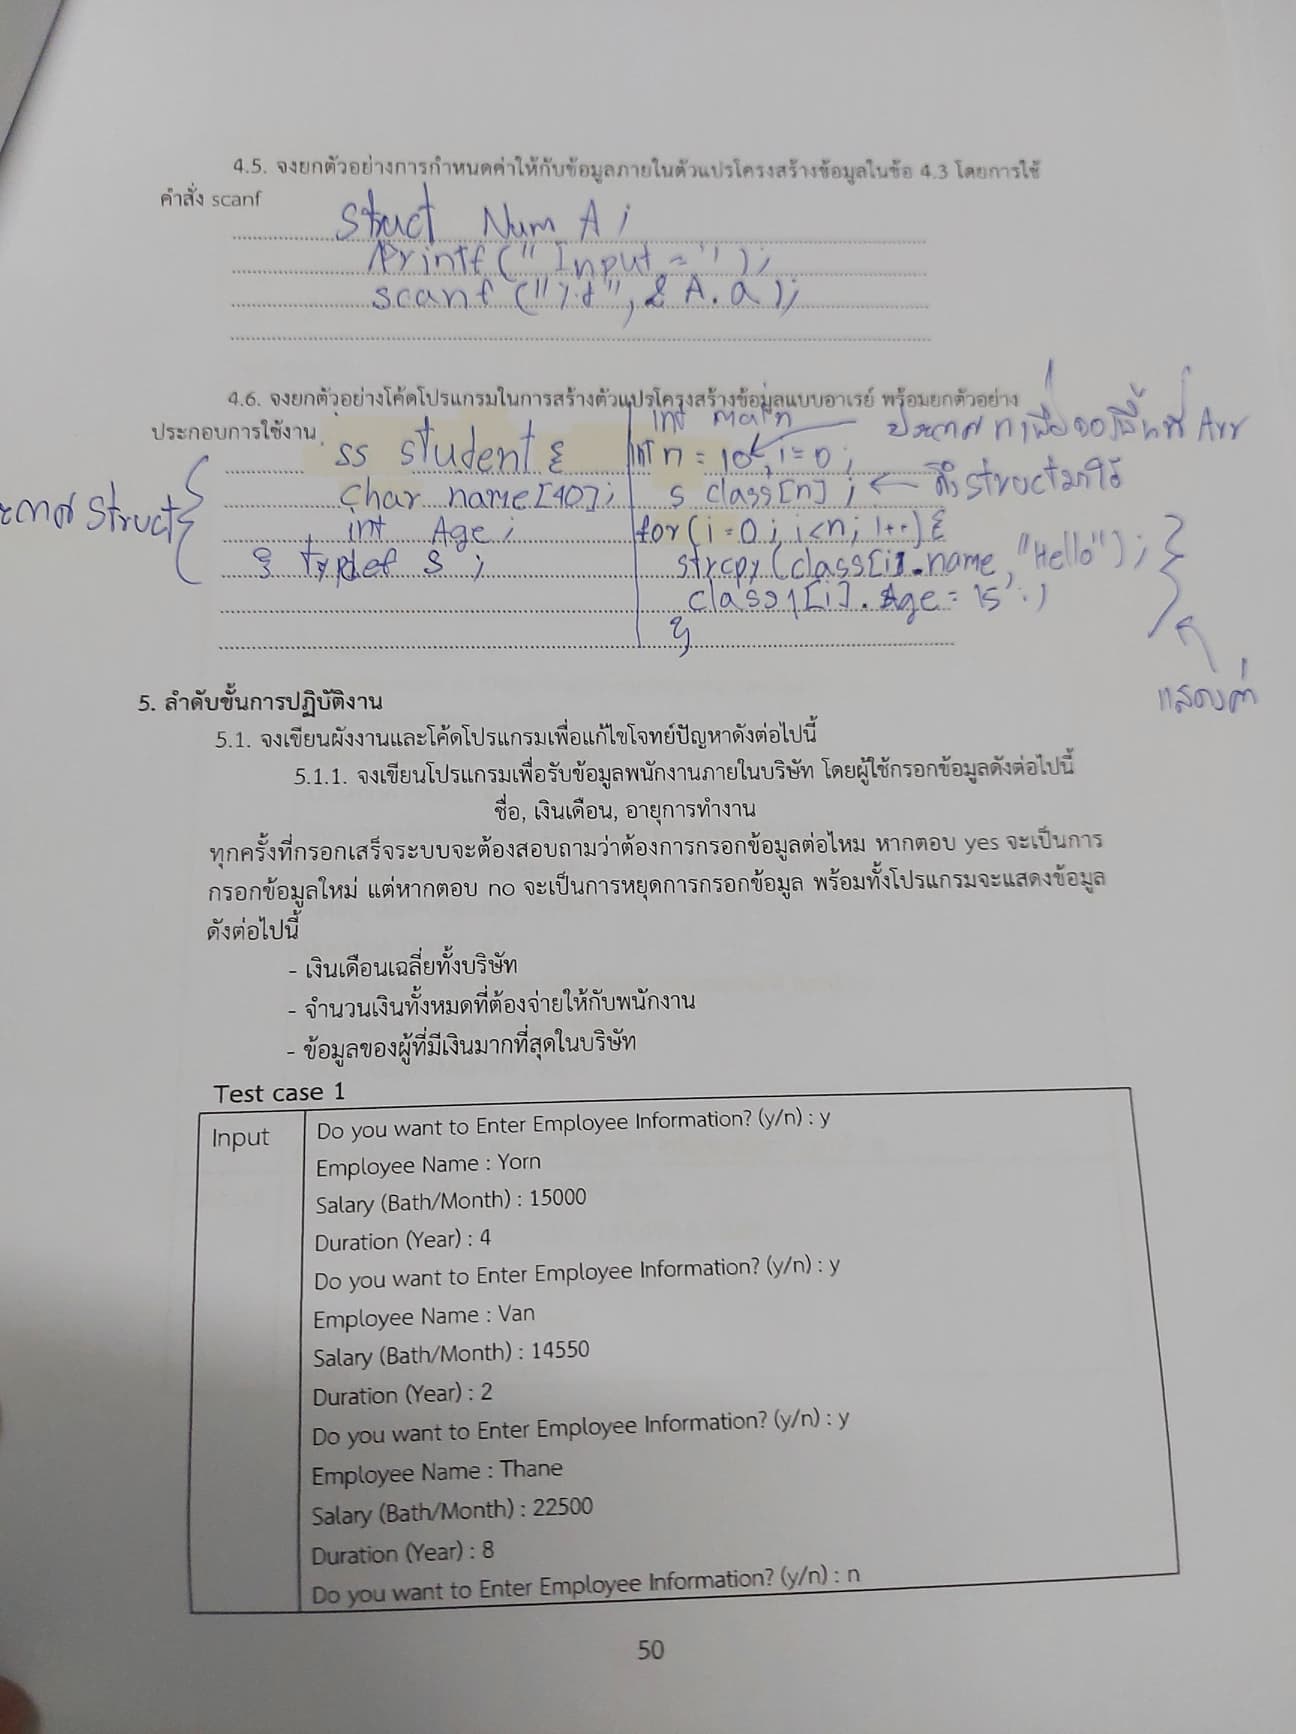 4.5. จงยกตัวอย่างการกำหนดค่าให้กับข้อมูลภายในตัวแปรโครงสร้างข้อมูลในข้อ 4.3 โดยการใช้
คำสั่ง scanf
Struct Num A;
Printf("Input=");
scanf("%d", & A.a);
4.6. จงยกตัวอย่างโค้ดโปรแกรมในการสร้างตัวแปรโครงสร้างข้อมูลแบบอาเรย์ พร้อมยกตัวอย่าง
ประกอบการใช้งาน
ss student {
char name[40];
int Age;
} typdef S;
Struct
int main
int n = 10, i=0;
s class[n];
for(i=0; i<n; i++){
strcpy(class[i].name, "Hello");
class[i].Age = 15;
}
ประกาศ n เพื่อจองพื้นที่ Arr
ดึง struct มาใช้
แสดงค่า
5. ลำดับขั้นการปฏิบัติงาน
5.1. จงเขียนผังงานและโค้ดโปรแกรมเพื่อแก้ไขโจทย์ปัญหาดังต่อไปนี้
5.1.1. จงเขียนโปรแกรมเพื่อรับข้อมูลพนักงานภายในบริษัท โดยผู้ใช้กรอกข้อมูลดังต่อไปนี้
ชื่อ, เงินเดือน, อายุการทำงาน
ทุกครั้งที่กรอกเสร็จระบบจะต้องสอบถามว่าต้องการกรอกข้อมูลต่อไหม หากตอบ yes จะเป็นการ
กรอกข้อมูลใหม่ แต่หากตอบ no จะเป็นการหยุดการกรอกข้อมูล พร้อมทั้งโปรแกรมจะแสดงข้อมูล
ดังต่อไปนี้
- เงินเดือนเฉลี่ยทั้งบริษัท
- จำนวนเงินทั้งหมดที่ต้องจ่ายให้กับพนักงาน
- ข้อมูลของผู้ที่มีเงินมากที่สุดในบริษัท
Test case 1
Input
Do you want to Enter Employee Information? (y/n) : y
Employee Name : Yorn
Salary (Bath/Month) : 15000
Duration (Year) : 4
Do you want to Enter Employee Information? (y/n) : y
Employee Name : Van
Salary (Bath/Month) : 14550
Duration (Year) : 2
Do you want to Enter Employee Information? (y/n) : y
Employee Name : Thane
Salary (Bath/Month) : 22500
Duration (Year) : 8
Do you want to Enter Employee Information? (y/n) : n
50